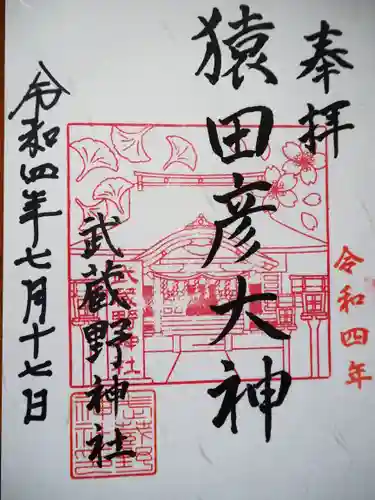 奉拝
令和四年
猿田彦大神
武蔵野神社
令和四年七月十七日